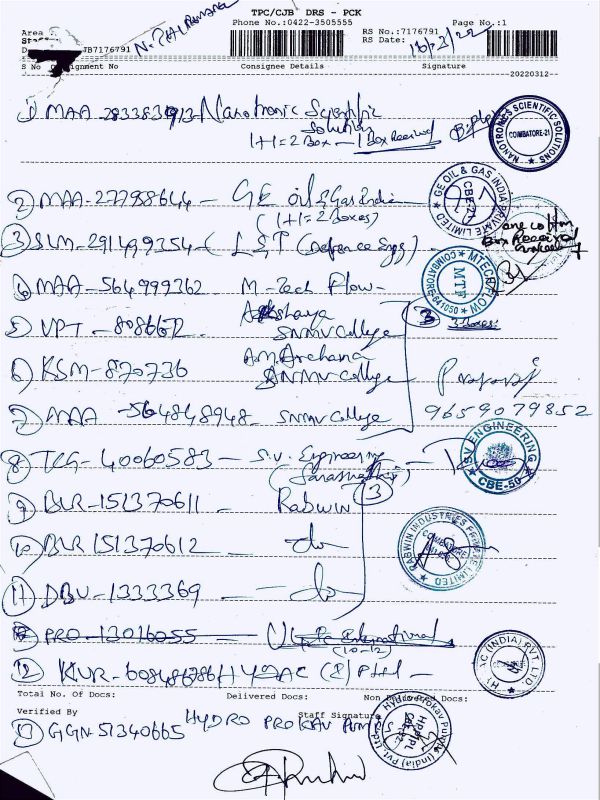 TPC/CJB DRS - PCK
Phone No.:0422-3505555 Page No.:1
Area RS No.:7176791
RS Date:
JB7176791
S No Consignment No Consignee Details Signature
20220312
1) MAA-283383 Nanotronic Scientific
Solution
1+1=2 Box - 1 Box Received
NANOTRONICS SCIENTIFIC SOLUTIONS COIMBATORE-21
2) MAA-277988644 - GE Oil & Gas India
(1+1=2 Boxes)
GE OIL & GAS INDIA PRIVATE LIMITED CBE-21
3) SLM-291499354 - (L&T (Defence Sys)
Box Received
4) MAA-564999362 M-Tech Flow-
MTECH FLOW MTF COIMBATORE
5) VPT - 8086672 - Akshaya
SNMV College
3 3 Boxes
6) KSM-870736 A.M. Archana
SNMV College
9659079852
7) MAA -564848948- SNMV College
8) TCG-40060583 - S.V. Engineering
S.V ENGINEERING CBE-50
9) BLR-151370611 - Rabwin 3
10) BLR 151370612 - do
RABWIN INDUSTRIES PRIVATE LIMITED COIMBATORE
11) DBV-1333369 - do
PRO-13016055 - International
(10-12)
12) KUR-608486786 HYDAC (I) Pltd -
HYDAC (INDIA) PVT. LTD
Total No. Of Docs: Delivered Docs: Non Delivered Docs:
Verified By Staff Signature
13) GGN 51340665 HYDRO PROKAV PUMP
Hydro Prokav Pumps (India) Pvt. Ltd. HPPIPL